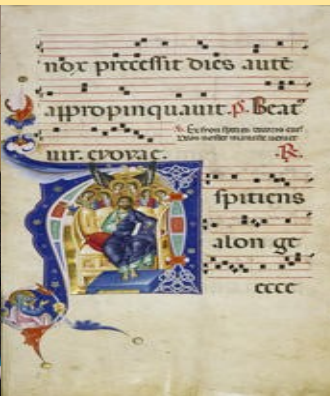 nox precessit dies autē
appropinquauit. P. Beat
uir. evovae.
R.
A
spitiens
alon ge
ecce